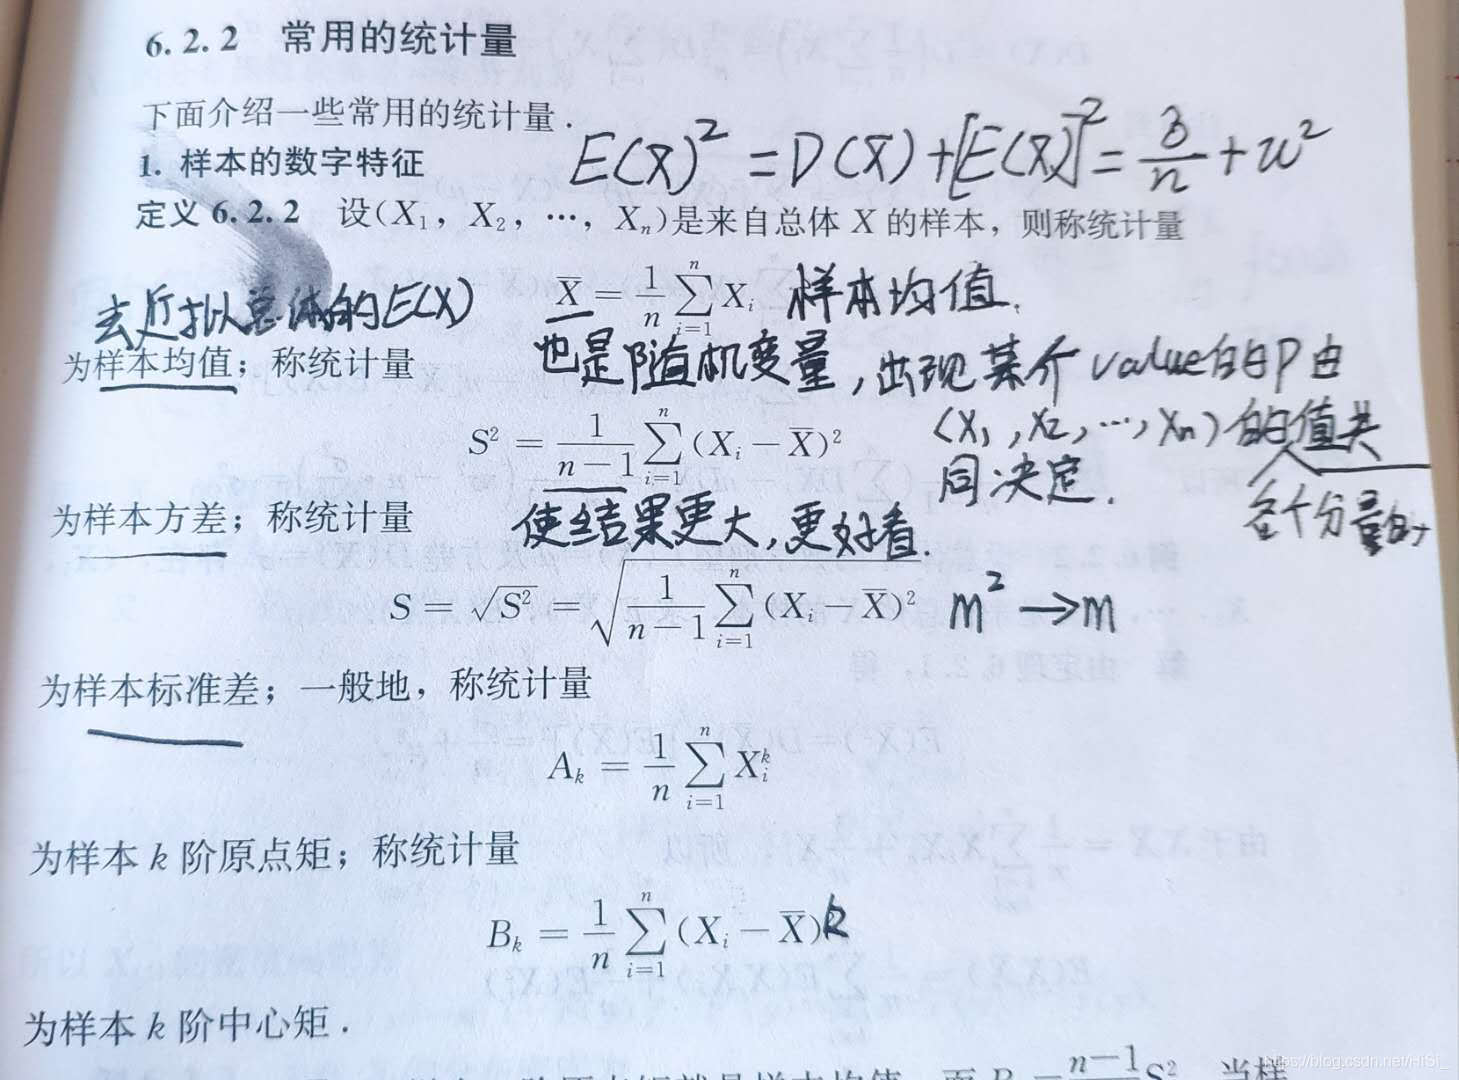 6.2.2 常用的统计量
下面介绍一些常用的统计量.
E(X̄)² = D(X̄) + [E(X̄)]² = 8/n + u²
1. 样本的数字特征
定义 6.2.2 设(X₁, X₂, …, Xₙ)是来自总体 X 的样本, 则称统计量
去近拟总体的E(X) X̄ = 1/n ∑ᵢ₌₁ⁿ Xᵢ 样本均值.
为样本均值; 称统计量 也是随机变量, 出现某个value的P由
(X₁, X₂, …, Xn)的值共
同决定.
各个分量的
S² = 1/(n−1) ∑ᵢ₌₁ⁿ (Xᵢ − X̄)²
为样本方差; 称统计量 使结果更大, 更好看.
S = √S² = √(1/(n−1) ∑ᵢ₌₁ⁿ (Xᵢ − X̄)²) m² → m
为样本标准差; 一般地, 称统计量
Aₖ = 1/n ∑ᵢ₌₁ⁿ Xᵢᵏ
为样本 k 阶原点矩; 称统计量
Bₖ = 1/n ∑ᵢ₌₁ⁿ (Xᵢ − X̄)k
为样本 k 阶中心矩.
n−1 S²
https://blog.csdn.net/HiSi_